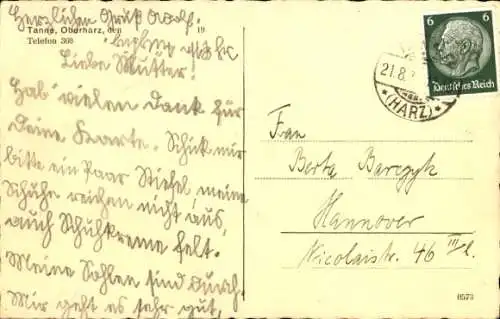 Herzlichen Gruß Adolf.
Tanne, Oberharz, den 19
Telefon 363
Liebe Mutter!
Hab' vielen Dank für
Deine Karte. Schick mir
bitte ein Paar Stiefel meine
Schuhe reichen nicht aus,
auch Schuhkreme fehlt.
Meine Sohlen sind durch.
Mir geht es sehr gut,
6
Deutsches Reich
21.8.
(HARZ)
Frau
Berta Barczyk
Hannover
Nicolaistr. 46 III l.
0573